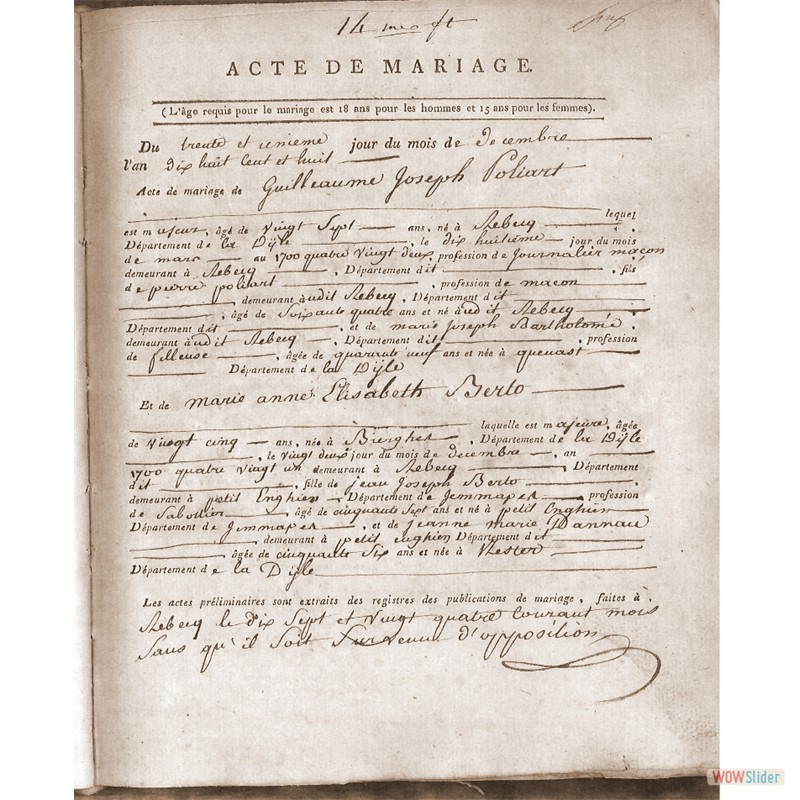 14 mes ft
ACTE DE MARIAGE.
(L'âge requis pour le mariage est 18 ans pour les hommes et 15 ans pour les femmes).
Du trente et unieme jour du mois de decembre
l'an dix huit Cent et huit
Acte de mariage de Guilleaume Joseph Poliart
lequel
est majeur, âgé de vingt Sept ans, né à Rebecq
Département de la Dijle, le dix huitieme jour du mois
de mars au 1700 quatre vingt deux, profession de Journalier maçon
demeurant à Rebecq, Département dit, fils
de pierre poliart, profession de maçon
demeurant audit Rebecq, Département dit
, âgé de Soixante quatre ans et né audit Rebecq
Département dit, et de marie Joseph Bartholomé,
demeurant audit Rebecq, Département dit, profession
de filleuse, âgée de quarante neuf ans et née à quenast
Département de la Dijle
Et de marie anne Elisabeth Berto
laquelle est majeure, âgée
de vingt cinq ans, née à Bierghes, Département de la Dijle
, le vingt deux jour du mois de decembre, an
1700 quatre vingt un demeurant à Rebecq, Département
dit, fille de jean Joseph Berto
demeurant à petit Enghien, Département de Jemmapes, profession
de Sabottier, âgé de cinquante Sept ans et né à petit Enghien
Département de Jemmapes, et de jeanne marie Dannau
demeurant à petit enghien Département dit
âgée de cinquante Six ans et née à Hester
Département de la Dijle
Les actes préliminaires sont extraits des registres des publications de mariage, faites à
Rebecq le dix Sept et vingt quatre Courant mois
Sans qu'il Soit Survenu d'opposition
WOWSlider